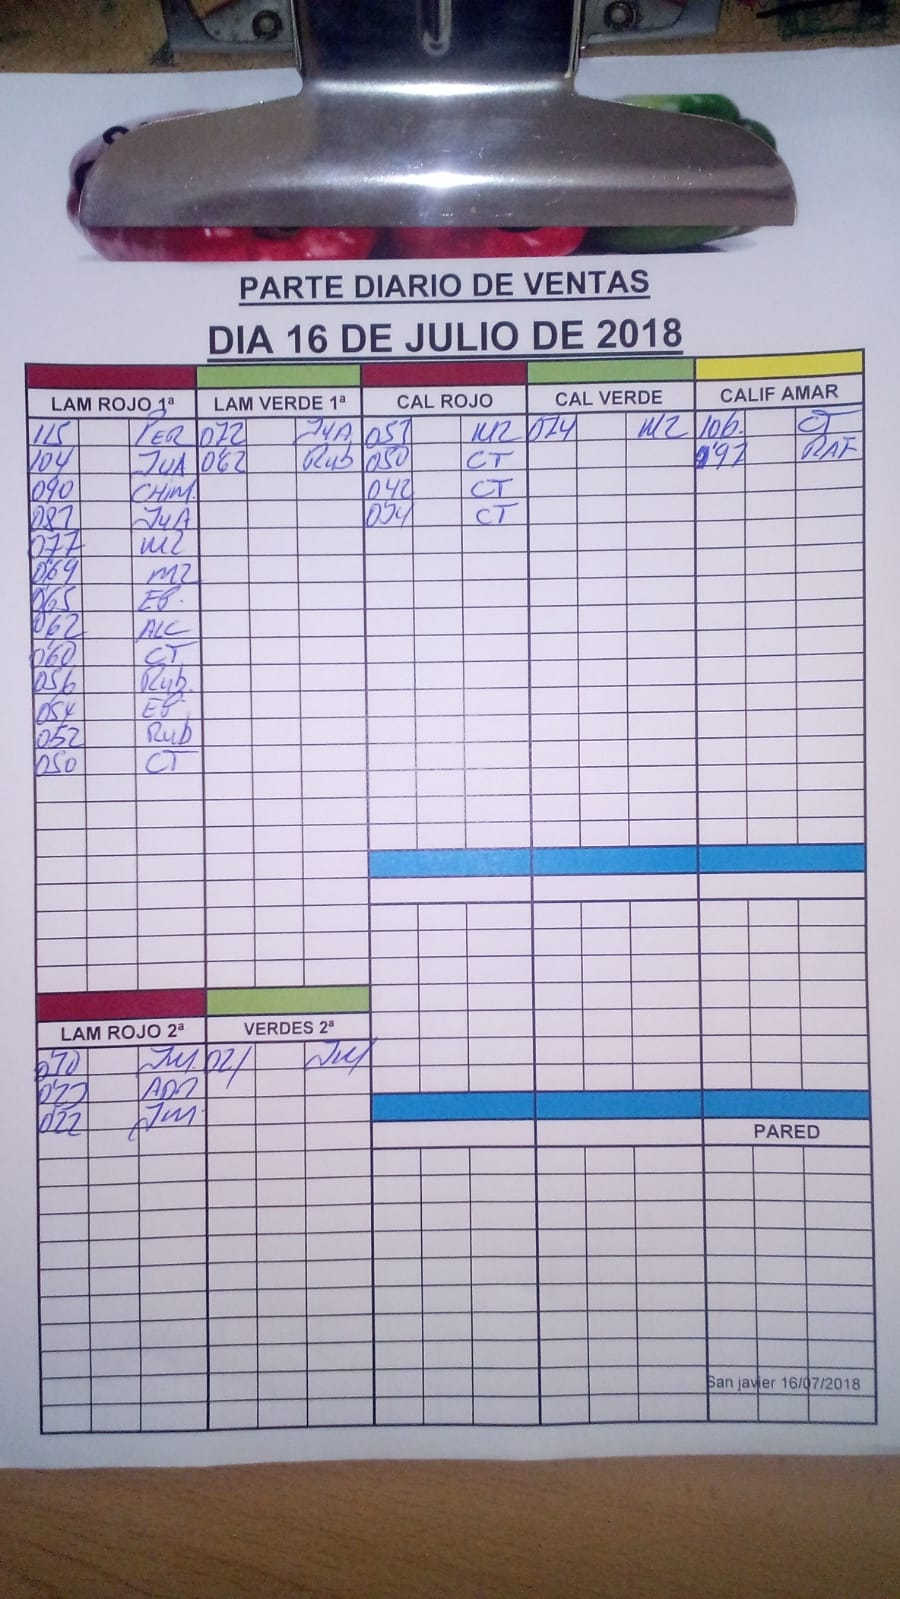 PARTE DIARIO DE VENTAS
DIA 16 DE JULIO DE 2018
LAM ROJO 1ª LAM VERDE 1ª CAL ROJO CAL VERDE CALIF AMAR
115 PER 072 JYA 057 MZ 074 MZ 106 CT
104 JYA 062 Rub 050 CT 097 RAF
090 CHIM. 042 CT
087 JYA 034 CT
077 MZ
069 MZ
065 EB.
062 ALC
060 CT
056 Rub.
054 EB
052 Rub
050 CT
LAM ROJO 2ª VERDES 2ª
021
022
PARED
San javier 16/07/2018